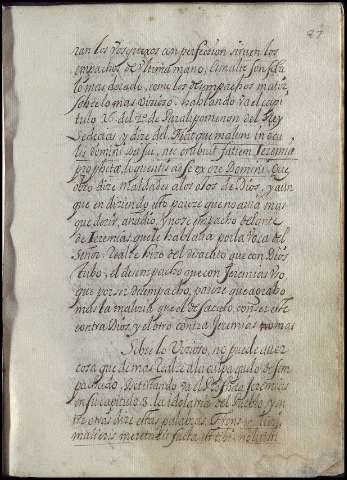 87
ran los bosquexos con perfeçion siruen los
empachos de ultima mano, esmalte son sobre
lo mas dorado, como los desempachos matiz
sobre lo mas vicioso. hablando va el capi
tulo 36. del 2º. de Paralipomenon del Rey
Sedecias y dize del. Fecitque malum in ocu
lis domini dei sui, nec erubuit faciem Jeremiæ
prophetæ, loquentis ad se ex ore Domini. Que
obro dize maldades a los ojos de Dios, y aun
que en diziendo esto pareze que no auia mas
que dezir, añadio, y no se empacho delante
de Jeremias que le hablaua por la voca del
Señor. Realze hizo del desacato que con Dios
tubo, el desempacho que con Jeremias vso
que por ser desempacho, pareze que agrabo
mas la malicia que el desacato, con ser este
contra Dios y el otro contra Jeremias no mas
Sobre lo vicioso, no puede auer
cosa que de mas realze a la culpa que lo desem
pachado. Detestando va el Propheta Jeremias
en su capitulo 3. la idolatria del Pueblo, y en
tre otras dize estas palabras. Frons
mulieris meretricis facta est tibi noluisti